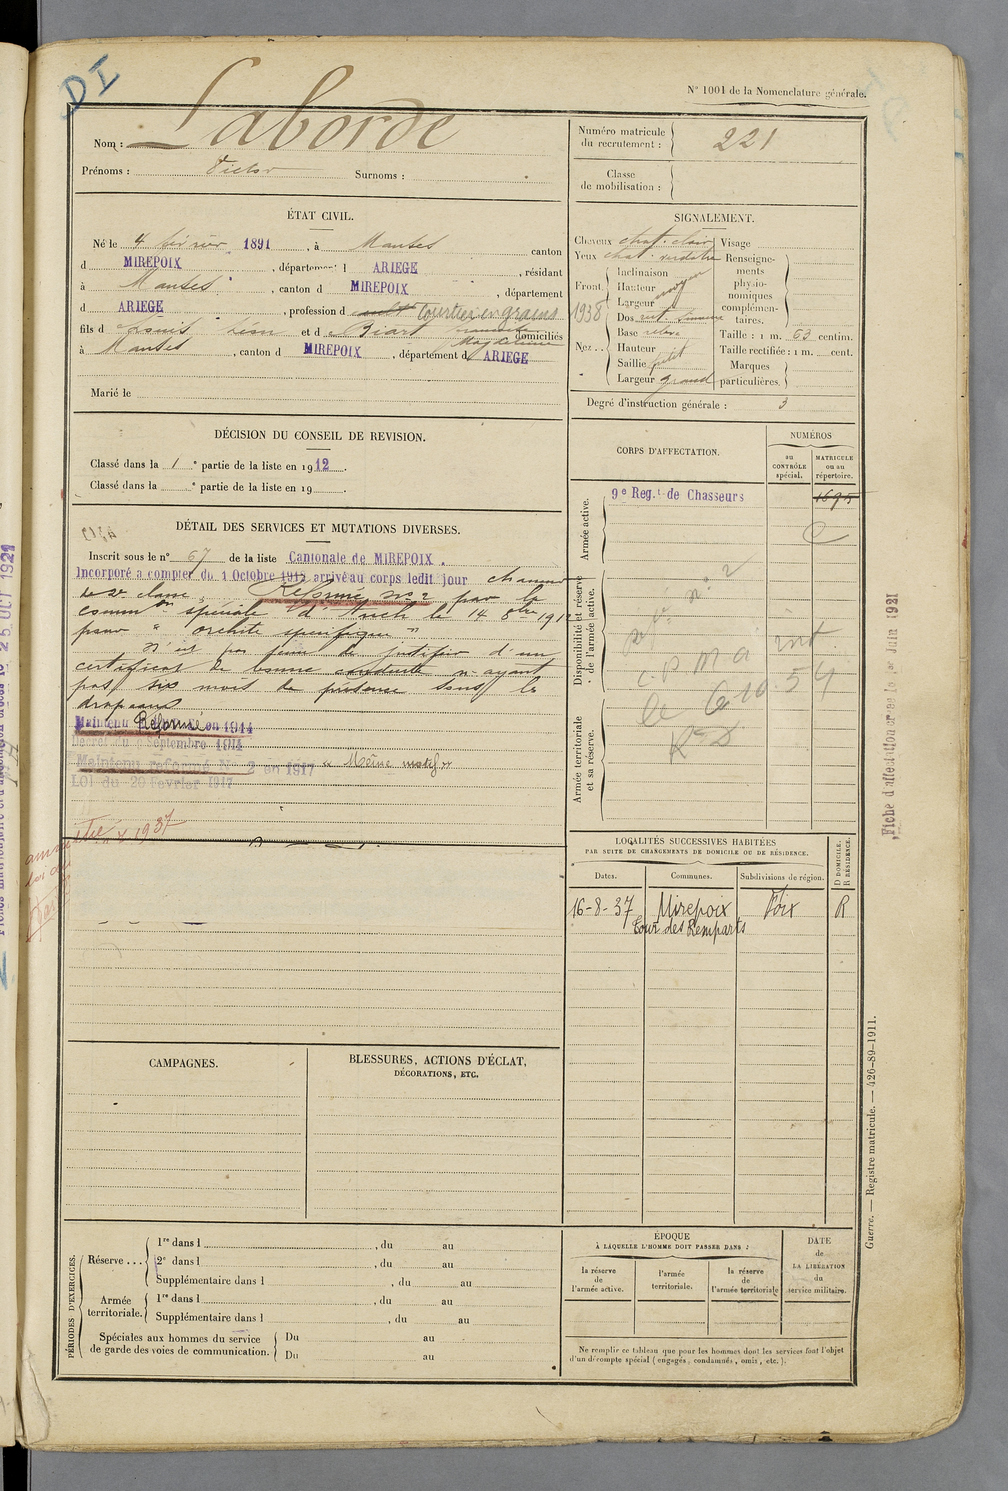 DI
N° 1001 de la Nomenclature générale.
Nom : Laborde
Prénoms : Victor Surnoms :
Numéro matricule du recrutement : 221
Classe de mobilisation :
ÉTAT CIVIL.
Né le 4 février 1891, à Manses canton
d MIREPOIX, département d ARIEGE, résidant
à Manses, canton d MIREPOIX, département
d ARIEGE, profession d cult Courtier en grains
fils d Louis Léon et d Biart domiciliés
Magdeleine
à Manses, canton d MIREPOIX, département d ARIEGE
Marié le
SIGNALEMENT.
Cheveux chat. clair Visage
Yeux chat. verdâtre Renseigne-
ments
physio-
nomiques
complémen-
taires.
Front. Inclinaison
Hauteur moyen
Largeur
1938
Nez... Dos rect. sinueux
Base relevé
Hauteur
Saillie petit
Largeur grand
Taille : 1 m. 63 centim.
Taille rectifiée : 1 m. cent.
Marques
particulières.
Degré d'instruction générale : 3
DÉCISION DU CONSEIL DE REVISION.
Classé dans la 1 e partie de la liste en 1912.
Classé dans la e partie de la liste en 19 .
CORPS D'AFFECTATION.
NUMÉROS
au CONTRÔLE spécial.
MATRICULE ou au répertoire.
Armée active.
9e Régt de Chasseurs 1695
Disponibilité et réserve de l'armée active.
Armée territoriale et sa réserve.
réf. n° 2
le 6.10.54
DÉTAIL DES SERVICES ET MUTATIONS DIVERSES.
Inscrit sous le n° 67 de la liste Cantonale de MIREPOIX.
Incorporé a compter du 1 Octobre 1912 arrivé au corps ledit jour chasseur
de 2e classe. Réformé n° 2 par la
common spéciale d'Auch le 14 8bre 1912
pour "orchite spécifique"
N'est pas tenu de justifier d'un
certificat de bonne conduite n'ayant
pas six mois de présence sous les
drapeaux
Maintenu Réformé en 1914
Décret du 9 Septembre 1914
Maintenu réformé N° 2 en 1917 "Même motif"
LOI du 20 février 1917
1937
LOCALITÉS SUCCESSIVES HABITÉES
PAR SUITE DE CHANGEMENTS DE DOMICILE OU DE RÉSIDENCE.
Dates. Communes. Subdivisions de région. D DOMICILE. R RÉSIDENCE.
16-8-37 Mirepoix Foix R
Cour des Remparts
CAMPAGNES.
BLESSURES, ACTIONS D'ÉCLAT,
DÉCORATIONS, ETC.
PÉRIODES D'EXERCICES.
Réserve ... 1re dans l , du au
2e dans l , du au
Supplémentaire dans l , du au
Armée territoriale. 1re dans l , du au
Supplémentaire dans l , du au
Spéciales aux hommes du service
de garde des voies de communication. Du au
Du au
ÉPOQUE
À LAQUELLE L'HOMME DOIT PASSER DANS :
la réserve de l'armée active.
l'armée territoriale.
la réserve de l'armée territoriale
DATE de LA LIBÉRATION du service militaire.
Ne remplir ce tableau que pour les hommes dont les services font l'objet
d'un décompte spécial (engagés, condamnés, omis, etc.).
Guerre. — Registre matricule. — 426-89-1911.
Fiche d'affectation créée le 1er Juin 1921
25 OCT 1921